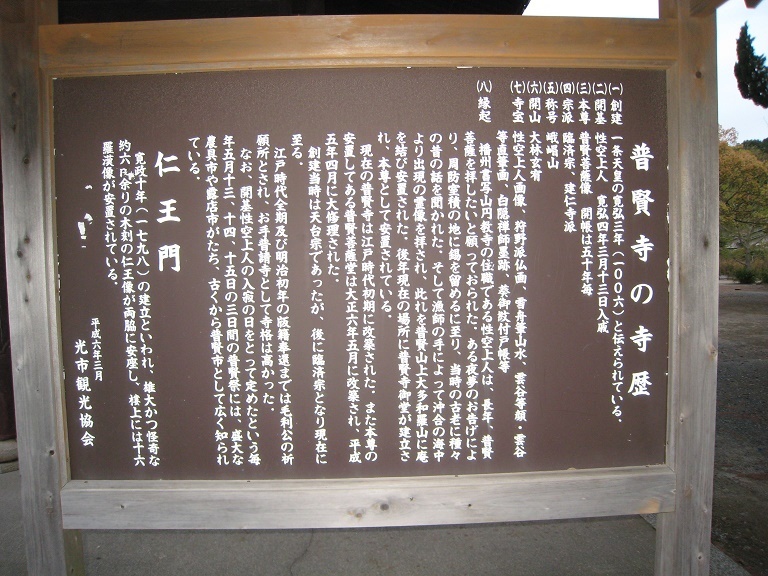 普賢寺の寺歴
(一)創建 一条天皇の寛弘三年(一〇〇六)と伝えられている、
(二)開基 性空上人 寛弘四年三月十三日入寂
(三)本尊 普賢菩薩像 開帳は五十年毎
(四)宗派 臨済宗、建仁寺派
(五)称号 峨嵋山
(六)開山 大林玄宥
(七)寺宝 性空上人画像、狩野派仏画、雪舟筆山水、雲谷等顔・雲谷
等直筆画、白隠禅師墨跡、葵御紋付戸帳等
(八)縁起 播州書写山円教寺の住職である性空上人は、長年、普賢
菩薩を拝したいと願っておられた。ある夜夢のお告げによ
り、周防室積の地に錫を留めるに至り、当時の古老に種々
の昔の話を聞かれた。そして漁師の手によって沖合の海中
より出現の霊像を拝され、此れを普賢山上大多和羅山に庵
を結び安置された。後年現在の場所に普賢寺御堂が建立さ
れ、本尊として安置されている。
現在の普賢寺は江戸時代初期に改築された。また本尊の
安置してある普賢菩薩堂は大正六年五月に改築され、平成
五年四月に大修理された。
創建当時は天台宗であったが、後に臨済宗となり現在に
至る。
江戸時代全期及び明治初年の版籍奉還までは毛利公の祈
願所とされ、お手普請寺として寺格は高かった。
なお、開基性空上人の入寂の日をとって定めたという毎
年五月十三、十四、十五日の三日間の普賢祭には、盛大な
農具市や露店市がたち、古くから普賢市として広く知られ
ている。
仁王門
寛政十年(一七九八)の建立といわれ、雄大かつ怪奇な
約六尺余りの木刻の仁王像が両脇に安座し、楼上には十六
羅漢像が安置されている。
平成六年三月
光市観光協会